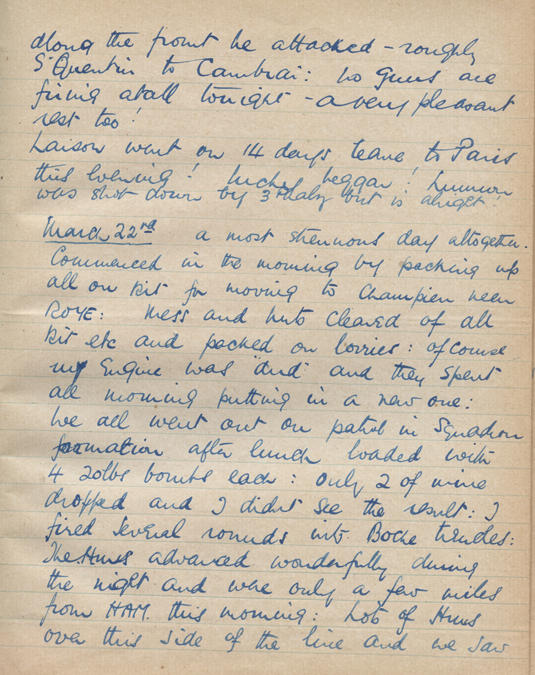 along the front he attacked - roughly
St Quentin to Cambrai: no guns are
firing atall tonight - a very pleasant
rest too!
Laison went on 14 days leave to Paris
this evening! lucky beggar!
was shot down by 3 but is alright!
March 22nd a most strenuous day altogether.
Commenced in the morning by packing up
all our kit for moving to Champien near
ROYE: Mess and huts cleared of all
kit etc and packed on lorries: of course
my Engine was 'dud' and they spent
all morning putting in a new one:
We all went out on patrol in Squadron
formation after lunch loaded with
4 20lbs bombs each: only 2 of mine
dropped and I didnt see the result: I
fired several rounds into Boche trenches:
The Huns advanced wonderfully during
the night and were only a few miles
from HAM. this morning: Lots of Huns
over this side of the line and we saw